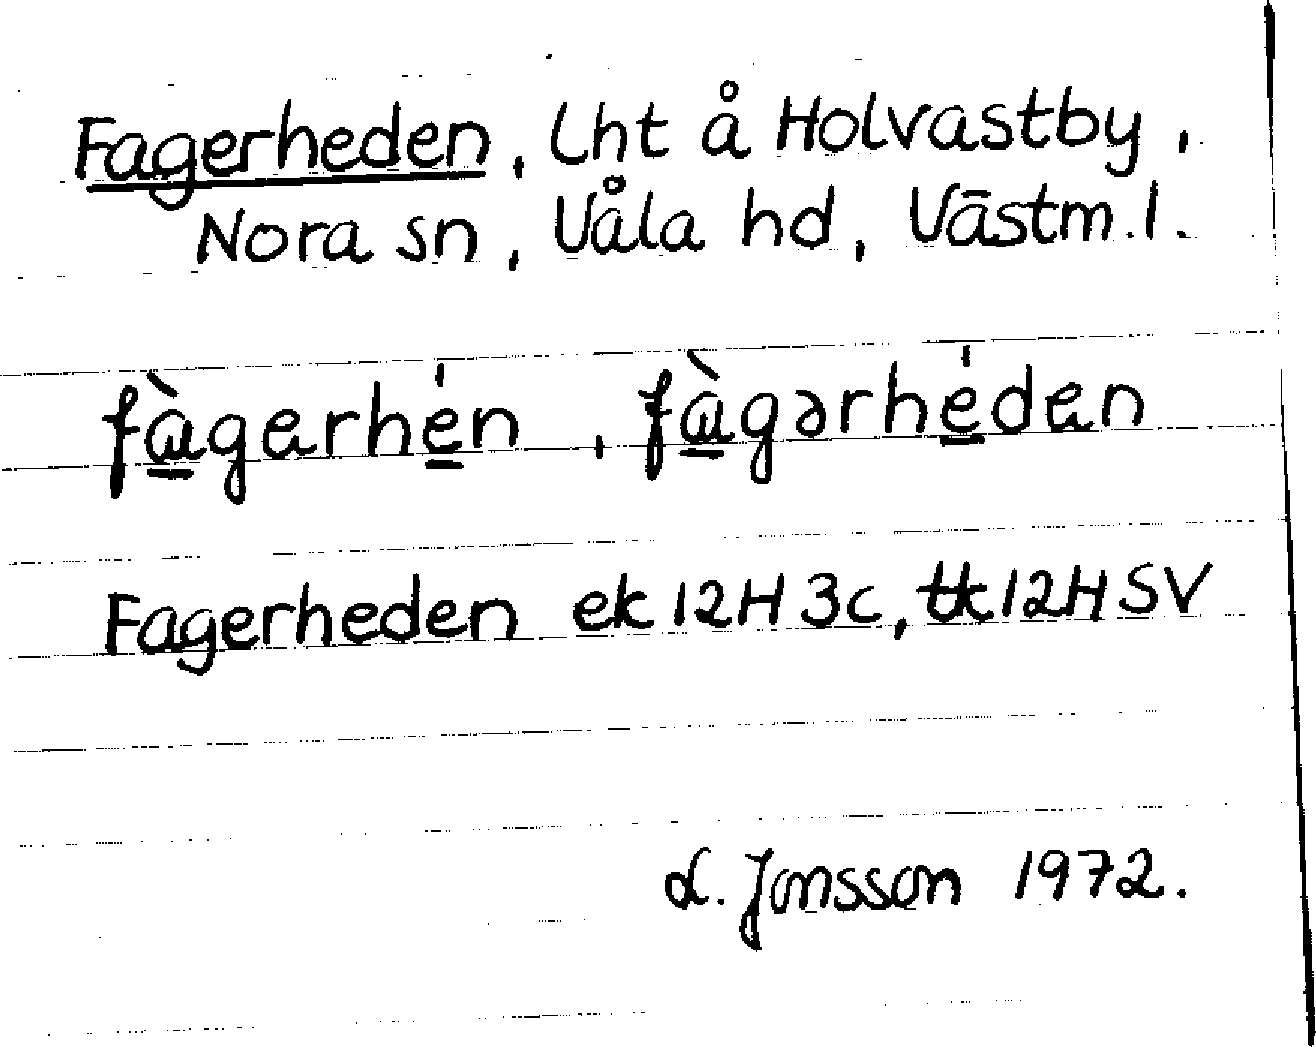 Fagerheden, Lht å Holvastby,
Nora sn, Våla hd, Västm.l.
fὰgerhén, fὰgərhéden
Fagerheden ek 12H 3c, tk 12H SV
L. Jonsson 1972.